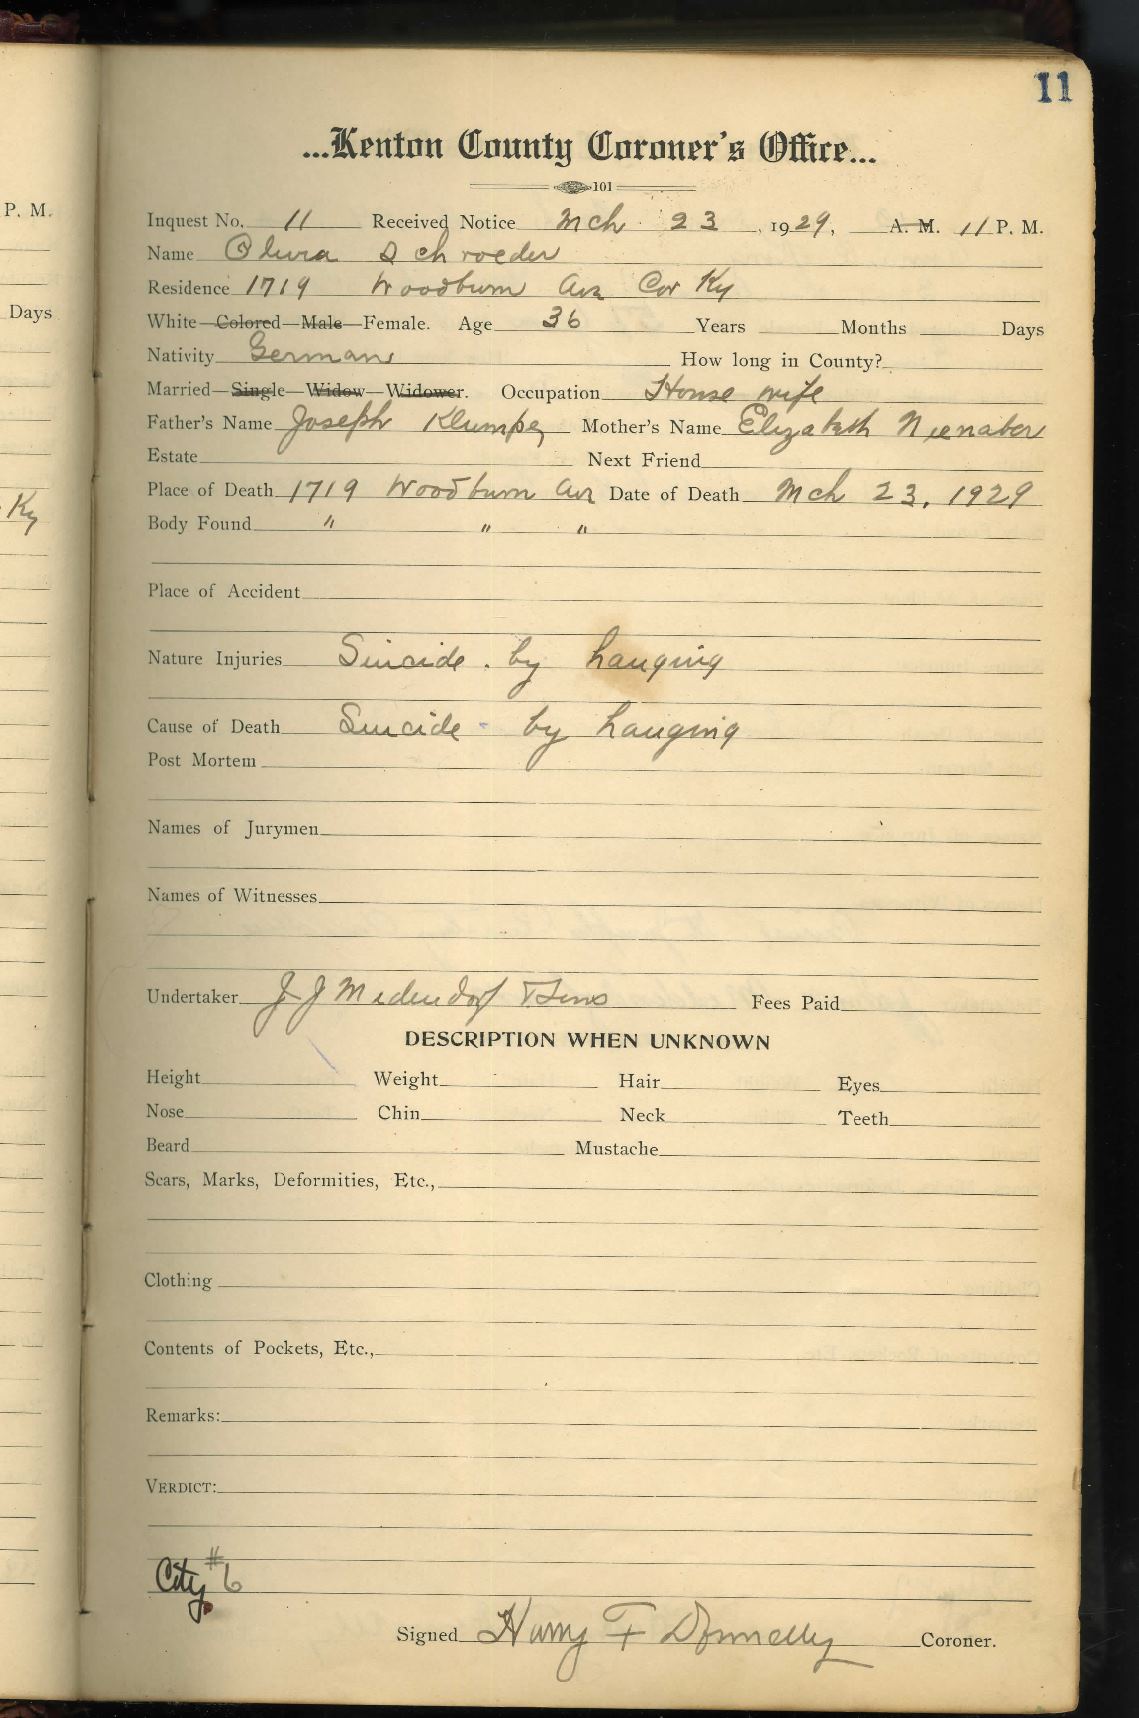 P. M.
Days
Ky
11
...Kenton County Coroner's Office...
101
Inquest No. 11 Received Notice Mch 23, 1929, A. M. 11 P. M.
Name Olivia Schroeder
Residence 1719 Woodburn Av Cov Ky
White—Colored—Male—Female. Age 36 Years Months Days
Nativity German How long in County?
Married—Single—Widow—Widower. Occupation House wife
Father's Name Joseph Klumpe Mother's Name Elizabeth Nienaber
Estate Next Friend
Place of Death 1719 Woodburn Av Date of Death Mch 23, 1929
Body Found " " "
Place of Accident
Nature Injuries Suicide. by hanging
Cause of Death Suicide - by hanging
Post Mortem
Names of Jurymen
Names of Witnesses
Undertaker J J Midendorf Sons Fees Paid
DESCRIPTION WHEN UNKNOWN
Height Weight Hair Eyes
Nose Chin Neck Teeth
Beard Mustache
Scars, Marks, Deformities, Etc.,
Clothing
Contents of Pockets, Etc.,
Remarks:
VERDICT:
City #6
Signed Harry F Donnelly Coroner.